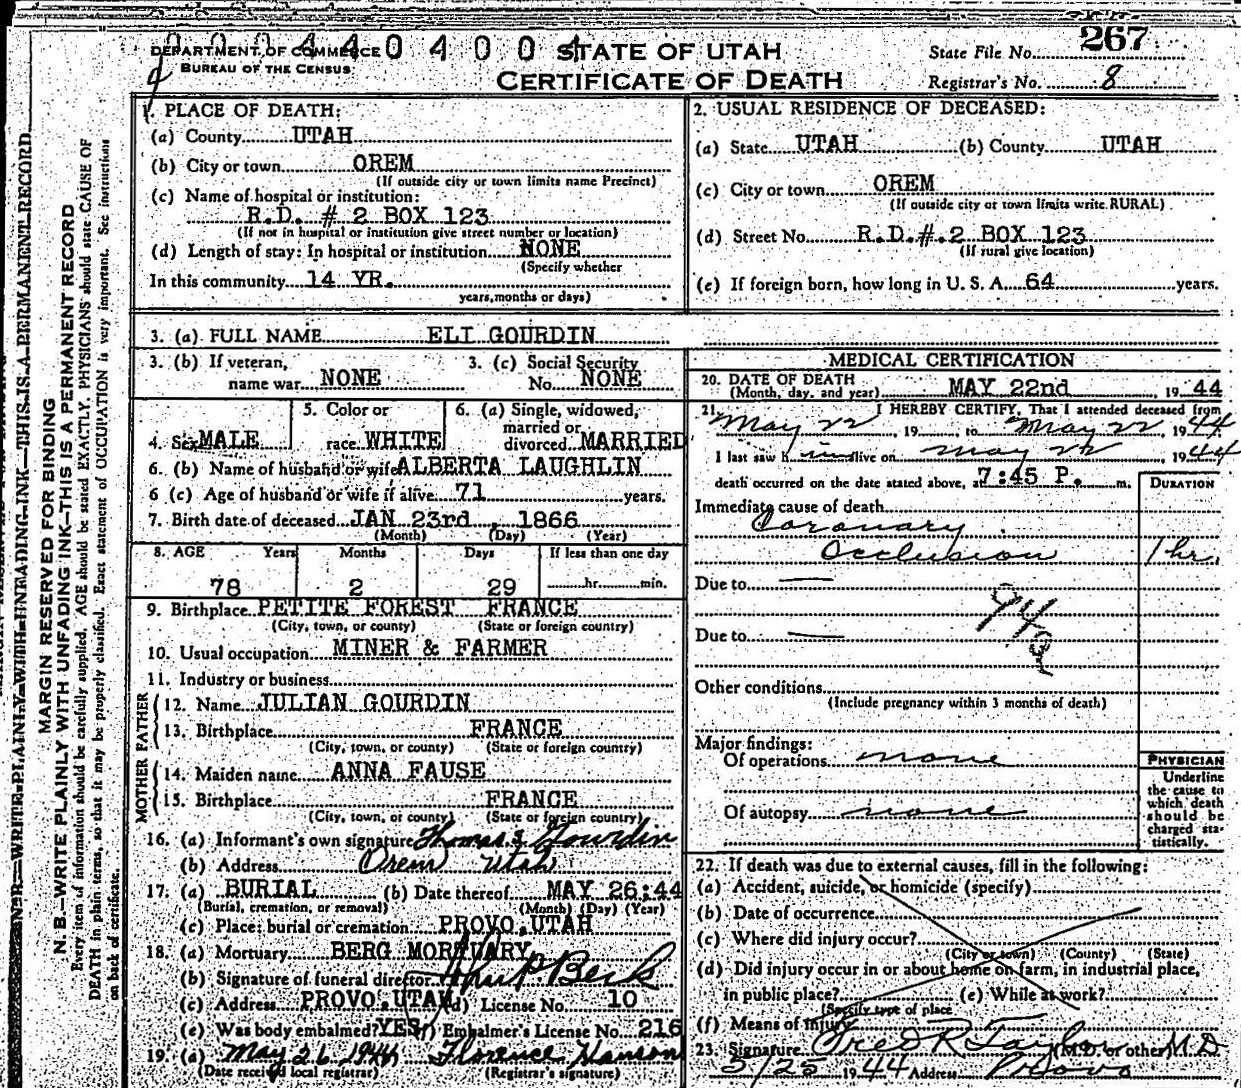 DEPARTMENT OF COMMERCE
BUREAU OF THE CENSUS
STATE OF UTAH
CERTIFICATE OF DEATH
State File No. 267
Registrar's No. 8
MARGIN RESERVED FOR BINDING
N. B.—WRITE PLAINLY WITH UNFADING INK—THIS IS A PERMANENT RECORD
Every item of information should be carefully supplied. AGE should be stated EXACTLY. PHYSICIANS should state CAUSE OF
DEATH in plain terms, so that it may be properly classified. Exact statement of OCCUPATION is very important. See instructions
on back of certificate.
1. PLACE OF DEATH:
(a) County UTAH
(b) City or town OREM
(If outside city or town limits name Precinct)
(c) Name of hospital or institution:
R.D. # 2 BOX 123
(If not in hospital or institution give street number or location)
(d) Length of stay: In hospital or institution NONE
(Specify whether
In this community 14 YR.
years, months or days)
2. USUAL RESIDENCE OF DECEASED:
(a) State UTAH (b) County UTAH
(c) City or town OREM
(If outside city or town limits write RURAL)
(d) Street No. R.D.#.2 BOX 123
(If rural give location)
(e) If foreign born, how long in U. S. A. 64 years.
3. (a) FULL NAME ELI GOURDIN
3. (b) If veteran, name war NONE
3. (c) Social Security No. NONE
4. Sex MALE
5. Color or race WHITE
6. (a) Single, widowed, married or divorced MARRIED
6. (b) Name of husband or wife ALBERTA LAUGHLIN
6 (c) Age of husband or wife if alive 71 years.
7. Birth date of deceased JAN 23rd, 1866
(Month) (Day) (Year)
8. AGE Years Months Days If less than one day
78 2 29 hr. min.
9. Birthplace PETITE FOREST FRANCE
(City, town, or county) (State or foreign country)
10. Usual occupation MINER & FARMER
11. Industry or business
FATHER
12. Name JULIAN GOURDIN
13. Birthplace FRANCE
(City, town, or county) (State or foreign country)
MOTHER
14. Maiden name ANNA FAUSE
15. Birthplace FRANCE
(City, town, or county) (State or foreign country)
16. (a) Informant's own signature Thomas J. Gourdin
(b) Address Orem Utah
17. (a) BURIAL (b) Date thereof MAY 26;44
(Burial, cremation, or removal) (Month) (Day) (Year)
(c) Place: burial or cremation PROVO, UTAH
18. (a) Mortuary BERG MORTUARY
(b) Signature of funeral director
(c) Address PROVO, UTAH (d) License No. 10
(e) Was body embalmed? YES (f) Embalmer's License No. 216
19. (a) May 26, 1944 Florence Hanson
(Date received local registrar) (Registrar's signature)
MEDICAL CERTIFICATION
20. DATE OF DEATH
(Month, day, and year) MAY 22nd 19 44
21. I HEREBY CERTIFY, That I attended deceased from
May 22, 19 , to May 22, 19 44
I last saw h im alive on May 22 19 44
death occurred on the date stated above, at 7:45 P. m.
DURATION
Immediate cause of death
Coronary
Occlusion 1 hr.
Due to —
94a
Due to —
Other conditions
(Include pregnancy within 3 months of death)
Major findings:
Of operations none
Of autopsy none
PHYSICIAN
Underline
the cause to
which death
should be
charged sta-
tistically.
22. If death was due to external causes, fill in the following:
(a) Accident, suicide, or homicide (specify)
(b) Date of occurrence
(c) Where did injury occur?
(City or town) (County) (State)
(d) Did injury occur in or about home on farm, in industrial place,
in public place? (e) While at work?
(Specify type of place
(f) Means of Injury
23. Signature Fred R Taylor (M.D. or other) M.D
5/25 19 44 Address Provo